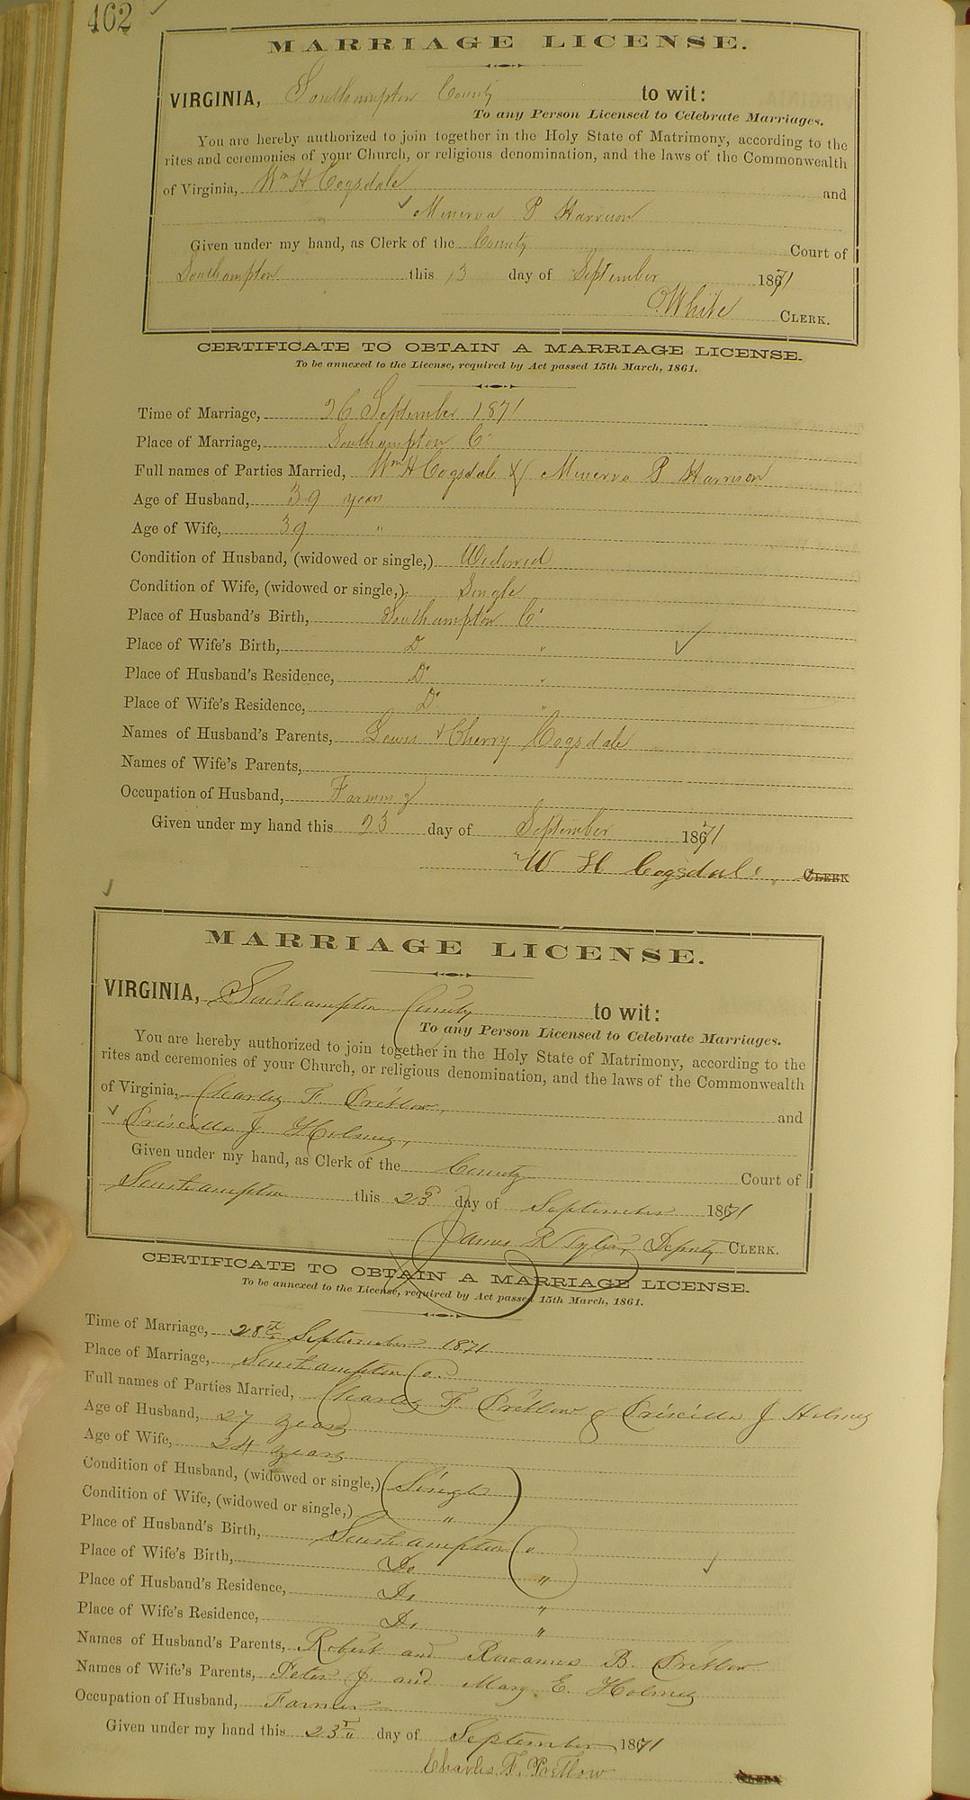 462
MARRIAGE LICENSE.
VIRGINIA, Southampton County to wit:
To any Person Licensed to Celebrate Marriages.
You are hereby authorized to join together in the Holy State of Matrimony, according to the
rites and ceremonies of your Church, or religious denomination, and the laws of the Commonwealth
of Virginia, Wm H Cogsdale and
✓ Minerva P Harrison
Given under my hand, as Clerk of the County Court of
Southampton this day of September 1871
White CLERK.
CERTIFICATE TO OBTAIN A MARRIAGE LICENSE.
To be annexed to the License, required by Act passed 15th March, 1861.
Time of Marriage, 26 September 1871
Place of Marriage, Southampton Co
Full names of Parties Married, Wm H Cogsdale & Minerva P Harrison
Age of Husband, 39 years
Age of Wife, 39 "
Condition of Husband, (widowed or single,) Widowed
Condition of Wife, (widowed or single,) Single
Place of Husband's Birth, Southampton Co
Place of Wife's Birth, Do " ✓
Place of Husband's Residence, Do "
Place of Wife's Residence, Do "
Names of Husband's Parents, Lewis & Cherry Cogsdale
Names of Wife's Parents,
Occupation of Husband, Farming
Given under my hand this 23 day of September 1871
W H Cogsdale CLERK
✓
MARRIAGE LICENSE.
VIRGINIA, Southampton County to wit:
To any Person Licensed to Celebrate Marriages.
You are hereby authorized to join together in the Holy State of Matrimony, according to the
rites and ceremonies of your Church, or religious denomination, and the laws of the Commonwealth
of Virginia, Charles F. Pretlow, and
✓ Priscilla J. Holmes,
Given under my hand, as Clerk of the County Court of
Southampton this 23d day of September 1871
James R Tyler, Deputy CLERK.
CERTIFICATE TO OBTAIN A MARRIAGE LICENSE.
To be annexed to the License, required by Act passed 15th March, 1861.
Time of Marriage, 28th September 1871
Place of Marriage, Southampton Co.
Full names of Parties Married, Charles F. Pretlow & Priscilla J Holmes
Age of Husband, 27 years
Age of Wife, 24 years
Condition of Husband, (widowed or single,) Single
Condition of Wife, (widowed or single,) "
Place of Husband's Birth, Southampton Co
Place of Wife's Birth, Do " ✓
Place of Husband's Residence, Do "
Place of Wife's Residence, Do "
Names of Husband's Parents, Robert and B. Pretlow
Names of Wife's Parents, Peter J. and Mary E. Holmes
Occupation of Husband, Farmer
Given under my hand this 23d day of September 1871
Charles F. Pretlow CLERK